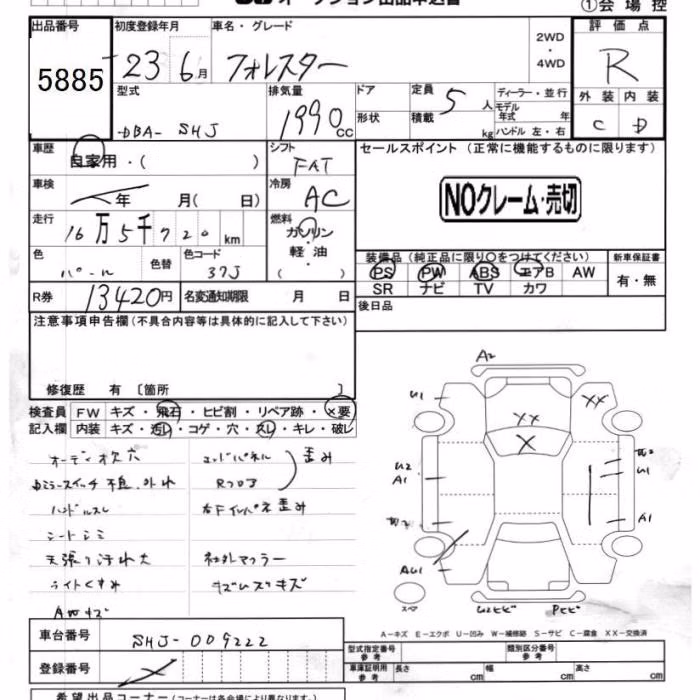 オークション出品申込書
①会場控
出品番号
5885
初度登録年月
23 6月
車名・グレード
フォレスター
2WD
・
4WD
評価点
R
外装 内装
C D
型式
DBA- SHJ
排気量
1990cc
ドア
形状
定員 5人
積載 kg
ディーラー・並行
モデル
年式 年
ハンドル 左・右
車歴
自家用・( )
シフト
FAT
車検
年 月( 日)
冷房
AC
走行
16万5千720km
燃料
ガソリン
・
軽油
・
色
パール
色替
色コード
37J
セールスポイント (正常に機能するものに限ります)
NOクレーム・売切
装備品(純正品に限り○をつけてください)
PS PW ABS エアB AW
SR ナビ TV カワ
新車保証書
有・無
R券 13420円
名変通知期限 月 日
後日品
注意事項申告欄(不具合内容等は具体的に記入して下さい)
修復歴 有 〔箇所 〕
検査員
記入欄
FW キズ・飛石・ヒビ割・リペア跡・×要
内装 キズ・汚レ・コゲ・穴・スレ・キレ・破レ
オーディオ欠 穴
エンドパネル
Rフロア
歪み
ハンドルスレ
シートシミ
天張り汚れ大
社外マフラー
ライトくすみ
AWキズ
A2
U1
XX
XX
X
U2
A1
W2
U1
W2
A1
スペア
車台番号 SHJ-009222
登録番号
A-キズ E-エクボ U-凹み W-補修跡 S-サビ C-腐食 XX-交換済
型式指定番号
参考
類別区分番号
参考
車庫証明用
参考
長さ cm 幅 cm 高さ cm
希望出品コーナー(コーナーは各会場により異なります。)